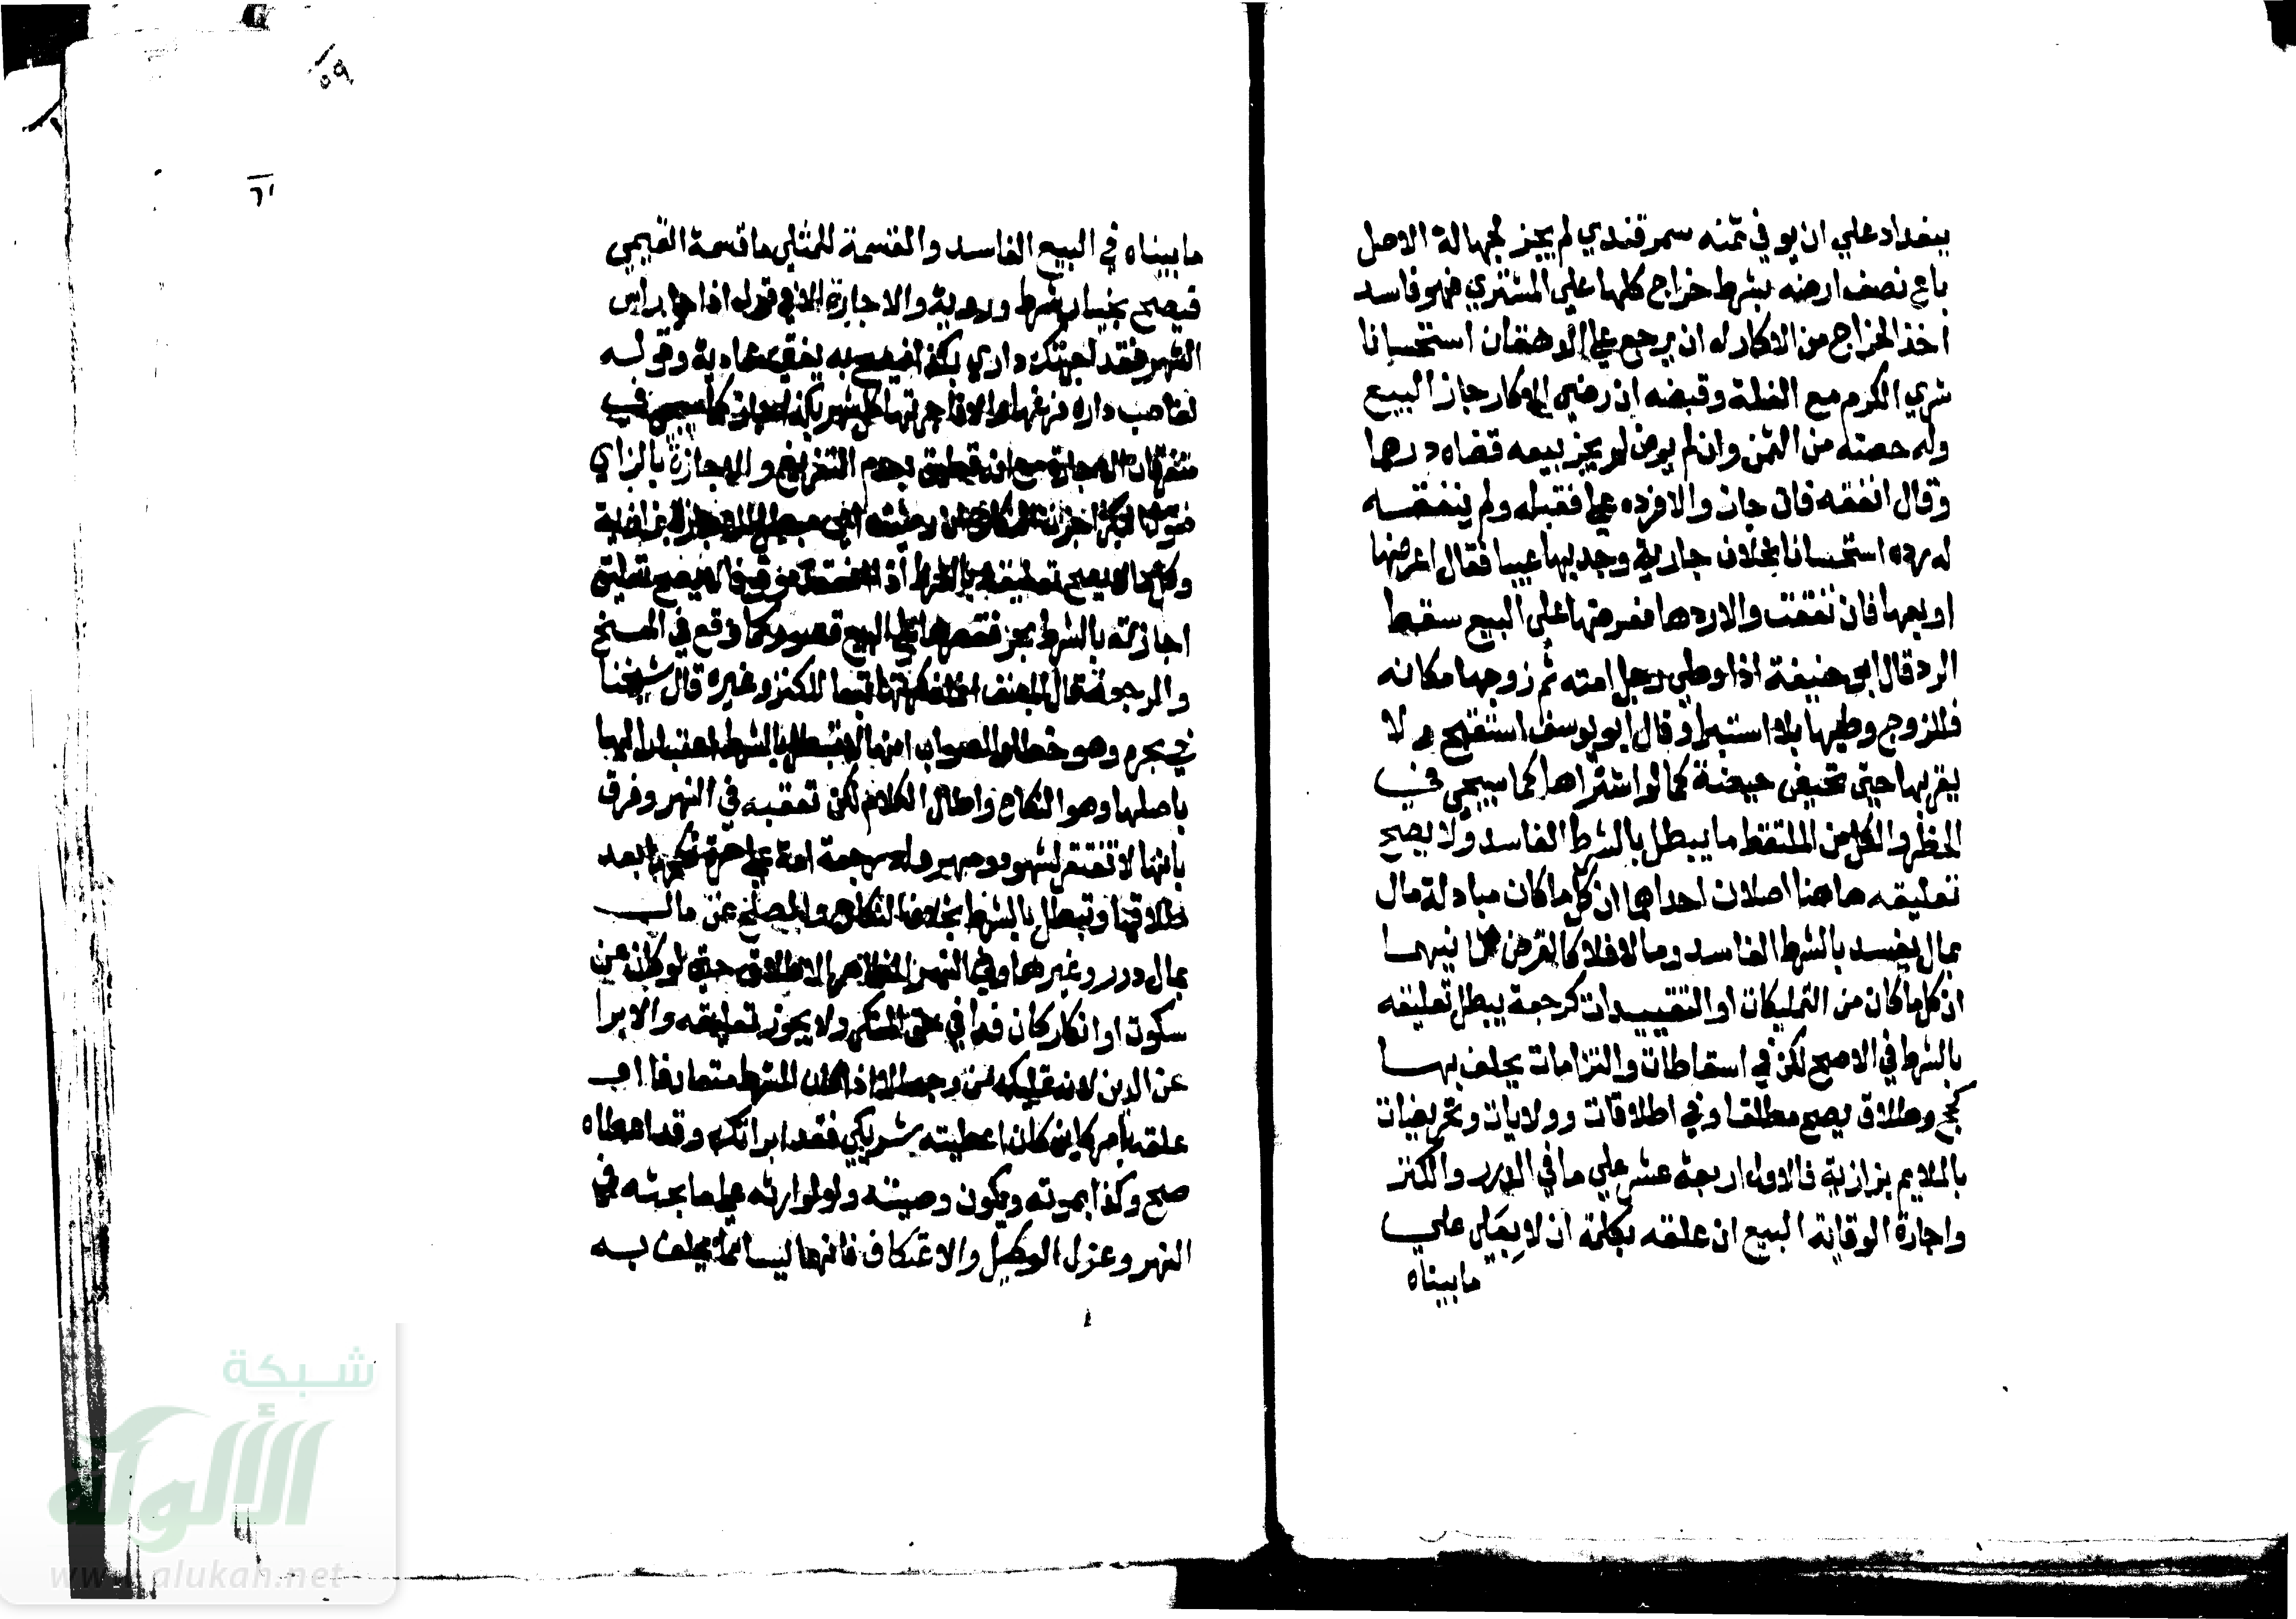 ببغداد علي ان يوفي ثمنه سمرقندي لم يجز لجهالة الاصل
باع نصف ارضه بشرط خراج كلها علي المشتري فهو فاسد
اخذ الخراج من الاكار له ان يرجع علي الدهقان استحسانا
شري الكرم مع الغلة وقبضه ان رضي الاكار جاز البيع
وله حصته من الثمن وان لم يرض لم يجز بيعه قضاه درهما
وقال انفقه فان جاز والا فرده علي فقبله ولم ينفقه
له رده استحسانا بخلاف جارية وجد بها عيبا فقال اعرضها
او بعها فان نفقت والا ردها فعرضها علي البيع سقط
الرد قال ابو حنيفة اذا وطي رجل امته ثم زوجها مكانه
فللزوج وطيها بلا استبرا وقال ابو يوسف استقبح و لا
يقربها حتي تحيض حيضة كما لو اشتراها كما سيجي في
الحظر والكل من الملتقط ما يبطل بالشرط الفاسد ولا يصح
تعليقه ها هنا اصلان احداهما ان كل ما كان مبادلة مال
بمال يفسد بالشرط الفاسد وما لا فلا كالقرض ثانيهما
ان كل ما كان من التمليكات او التقييدات كرجعة يبطل تعليقه
بالشرط في الاصح لكن في اسقاطات والتزامات يحلف بها
كحج وطلاق يصح مطلقا وفي اطلاقات وولايات وتحريضات
بالملايم بزازية فالاول اربعة عشر علي ما في الدرر والكنز
واجارة الوقاية البيع ان علقه بكلمة ان لا بعلي علي
ما بيناه
٥٩
٦١
ما بيناه في البيع الفاسد والقسمة للمثلي ما قسمة القيمي
فيصح بخيار شرط ورءوية والاجارة الا في قوله اذا جا راس
الشهر فقد اجرتك داري بكذا فيصح به يفتي عمادية وقوله
لغاصب داره فرغها والا فاجرتها كل شهر بكذا جاز كما سيجي في
متفرقات الاجارة مع انه تعليق بعدم التفريغ والاجازة بالزاي
وكل ما لا يصح تعليقه بالشرط اذا انعقد موقوفا لا يصح تعليق
اجازته بالشرط بحر فقصرها علي البيع قصور كما وقع في المنح
والرجعة قال المصنف انما ذكرتها تبعا للكنز وغيره قال شيخنا
في بحره وهو خطا والصواب انها لا تبطل بالشرط اعتبارا لها
باصلها وهو النكاح واطال الكلام لكن تعقبه في النهر وفرق
بانها لا تفتقر لشهود ومهر وله رجعة امة علي حرة نكحها بعد
طلاقها وتبطل بالشرط بخلاف النكاح والصلح عن مال
بمال درر وغيرها وفي النهر الظاهر الاطلاق حتي لو كان عن
سكوت او انكار كان فدا في حق المنكر ولا يجوز تعليقه والابرا
عن الدين لانه تمليك من وجه الا اذا كان الشرط متعارفا او
علقه بامر كاين كان اعطيته شريكي فقد ابراتك وقد اعطاه
صح وكذا بموته ويكون وصيته ولو لوارثه علي ما بحثه في
النهر وعزل الوكيل والاعتكاف فانهما ليسا مما يحلف به
شبكة
الألوكة
www.alukah.net